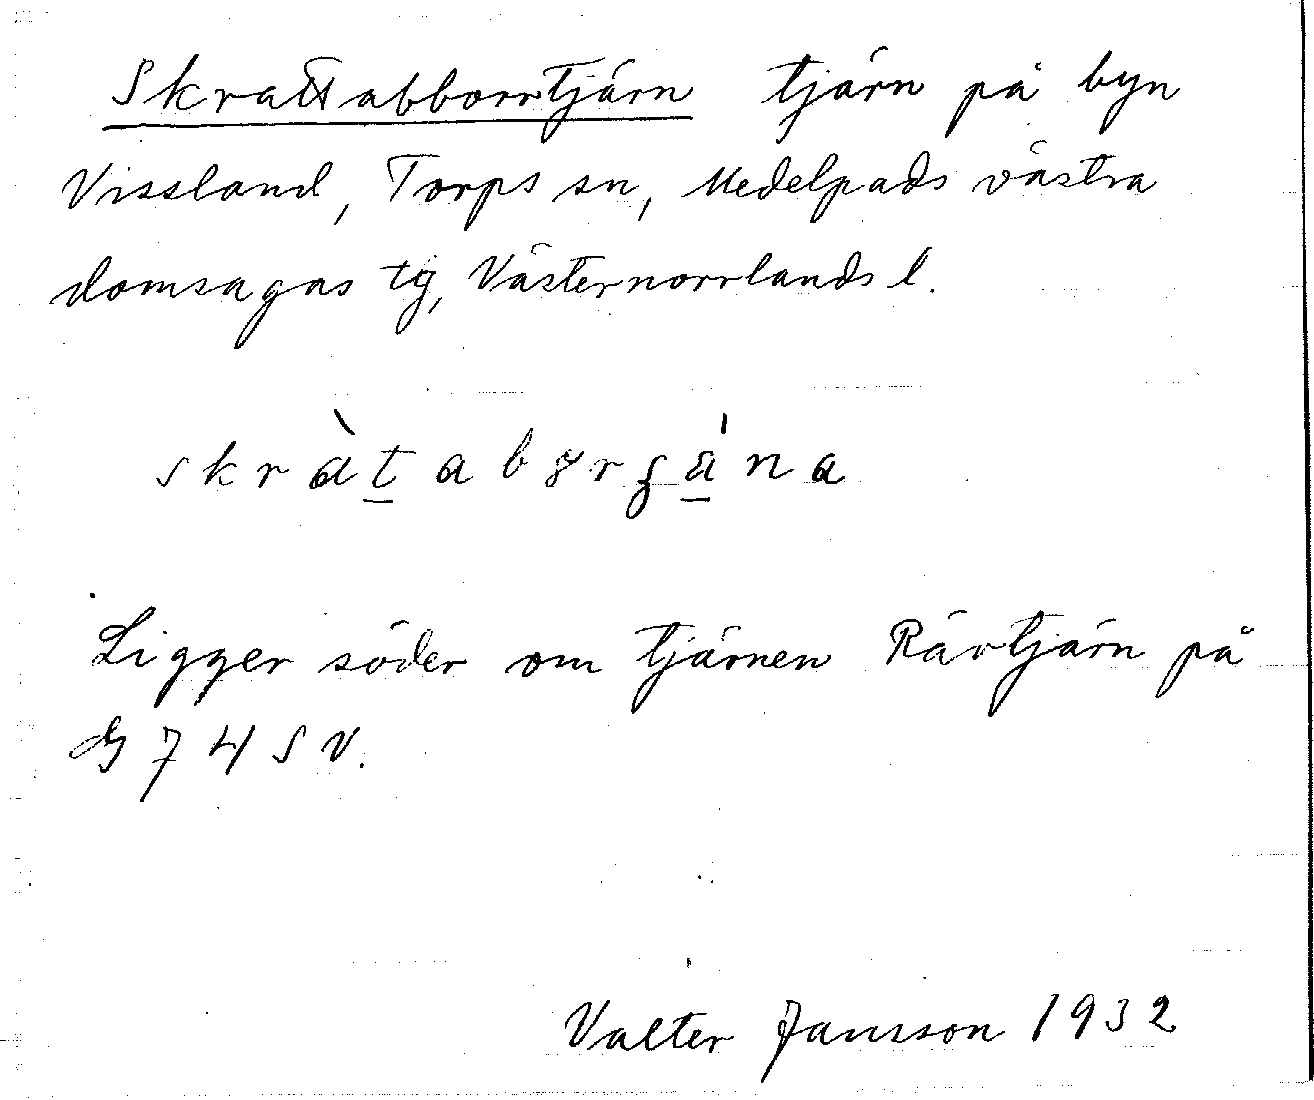 Skrattabborrtjärn tjärn på byn
Vissland, Torps sn, Medelpads västra
domsagas tg, Västernorrlands l.
Ligger söder om tjärnen Rävtjärn på
G 74 S V.
Valter Jansson 1932